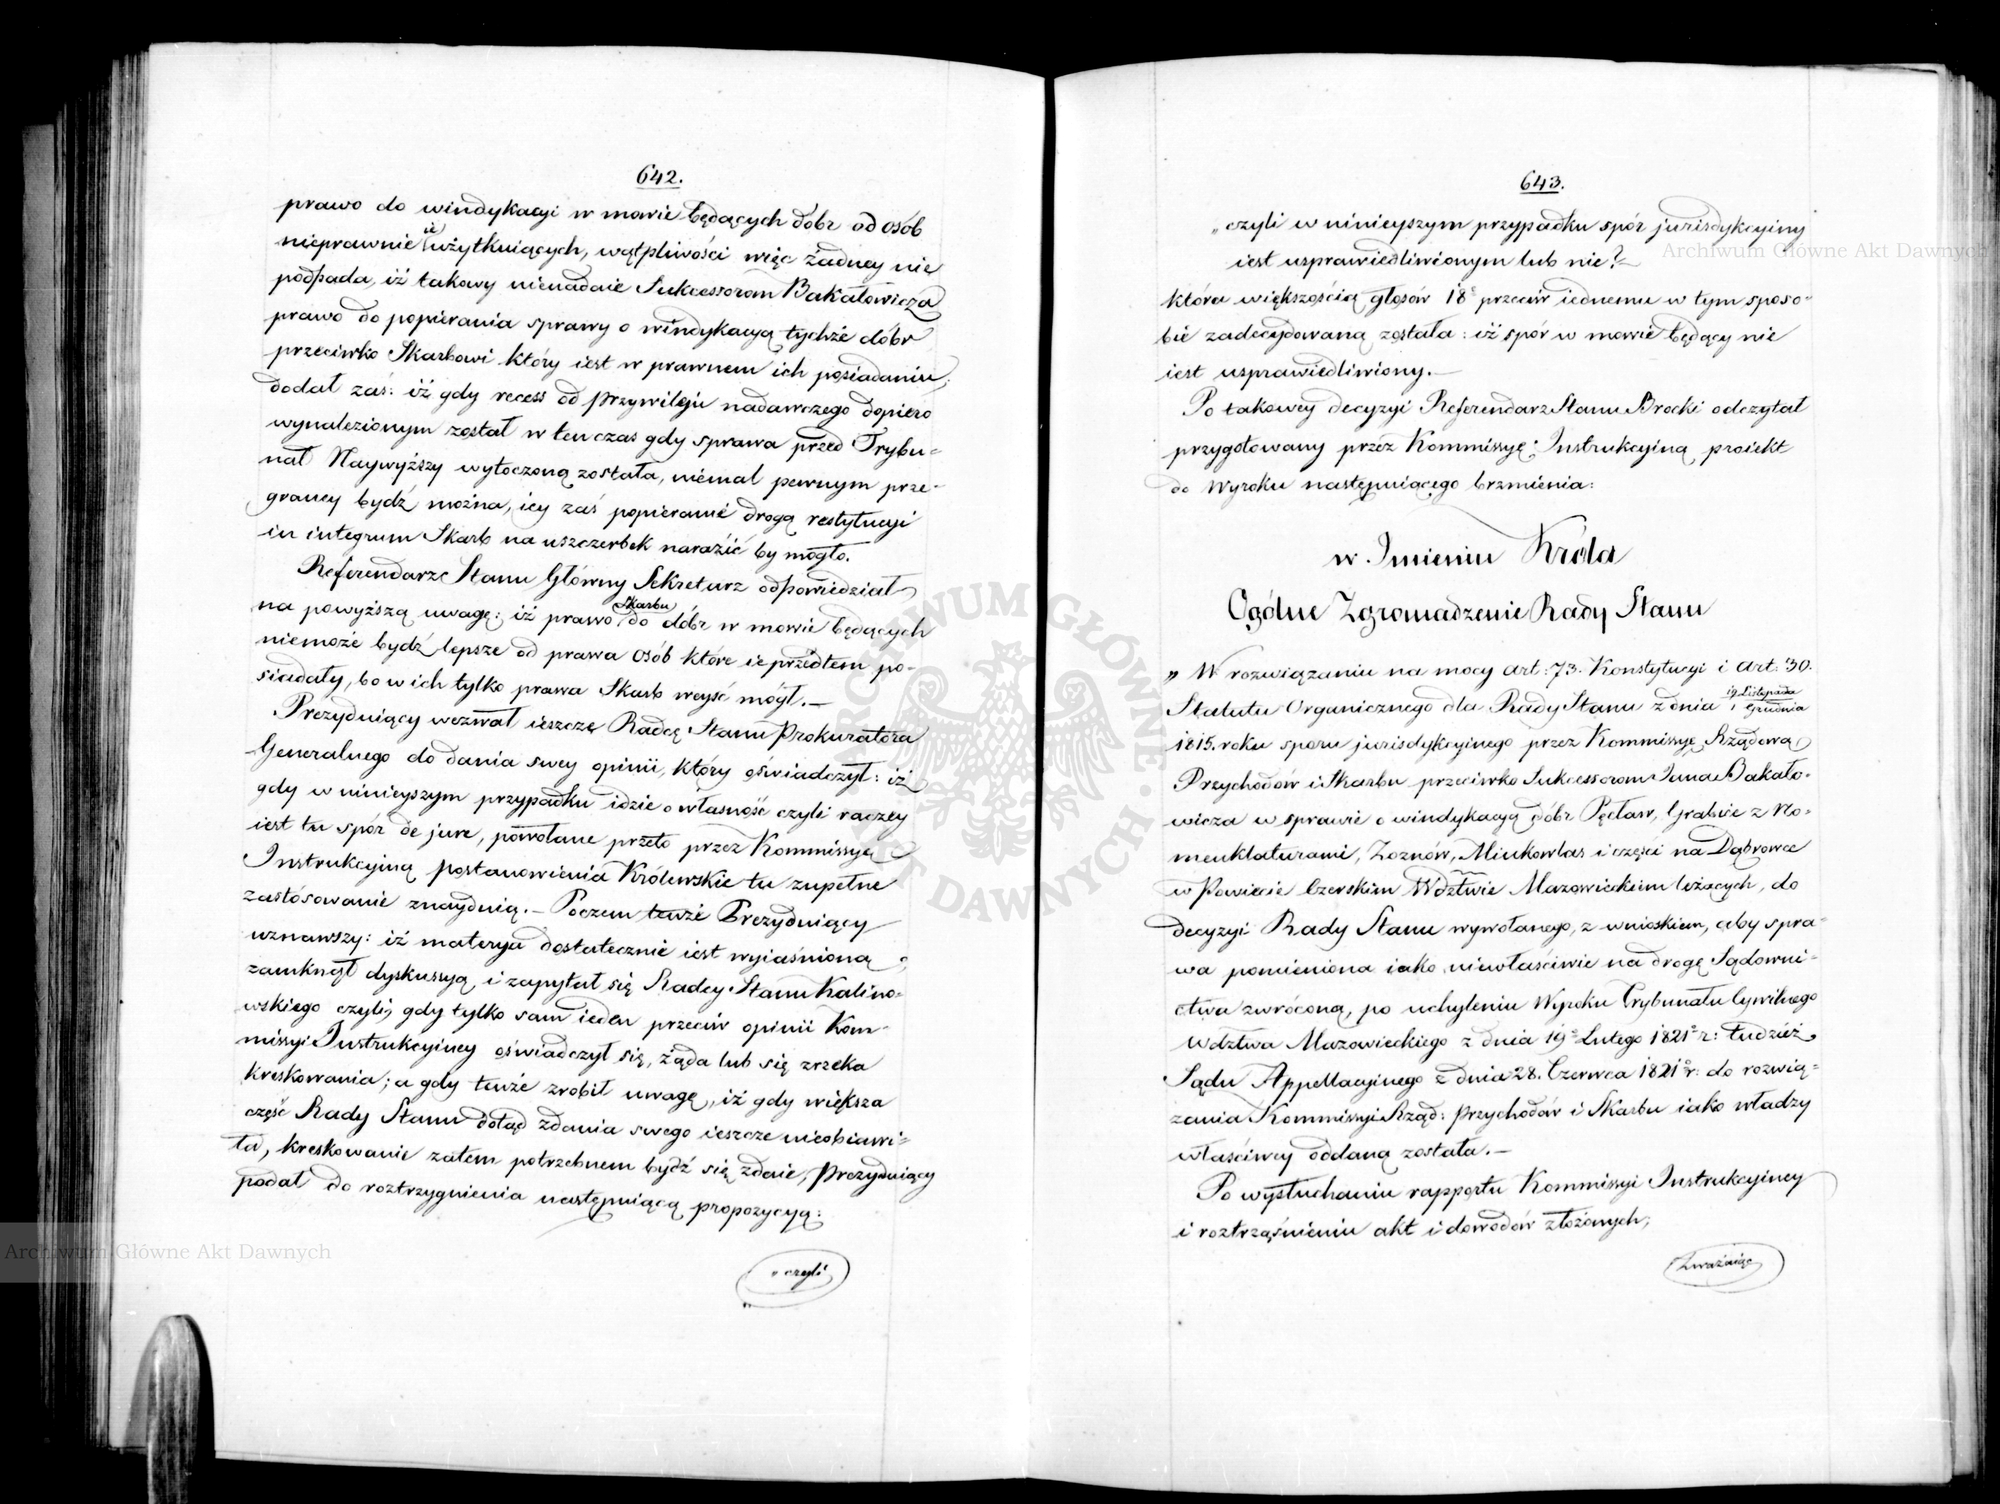 642.
prawo do windykacyi w mowie będących dóbr od osób
nieprawnie ie użytkuiących, wątpliwości więc żadney nie
podpada, iż takowy nienadaie Sukcessorom Bakałowicza
prawo do popierania sprawy o windykacyą tychże dóbr
przeciwko Skarbowi który iest w prawnem ich posiadaniu;
dodał zaś: iż gdy recess od przywileju nadawczego dopiero
wynalezionym został w ten czas gdy sprawa przed Trybu-
nał Naywyższy wytoczoną została, niemal pewnym prze-
graney bydź można, iey zaś popieranie drogą restytucyi
in integrum Skarb na uszczerbek narazić by mogło.
Referendarz Stanu Główny Sekretarz odpowiedział
na powyższą uwagę: iż prawo Skarbu do dóbr w mowie będących
niemoże bydź lepsze od prawa osób które ie przedtem po-
siadały, bo w ich tylko prawa Skarb weyść mógł.—
Prezyduiący wezwał ieszcze Radcę Stanu Prokuratora
Generalnego do dania swey opinii, który oświadczył: iż
gdy w ninieyszym przypadku idzie o własność czyli raczey
iest tu spór de jure, powołane przeto przez Kommissyą
Instrukcyiną postanowienia Królewskie tu zupełne
zastósowanie znayduią.— Poczem tenże Prezyduiący
uznawszy: iż materya dostatecznie iest wyiaśnioną
zamknął dyskussyą, i zapytał się Radcy Stanu Kalino-
wskiego czyli, gdy tylko sam ieden przeciw opinii Kom-
missyi Instrukcyiney oświadczył się, żąda lub się zrzeka
kreskowania; a gdy tenże zrobił uwagę, iż gdy większa
część Rady Stanu dotąd zdania swego ieszcze nieobiawi-
ła, kreskowanie zatem potrzebnem bydź się zdaie, Prezyduiący
podał do roztrzygnienia następuiącą propozycyą:
„ czyli
643.
„czyli w ninieyszym przypadku spór jurisdykcyiny
iest usprawiedliwionym lub nie?—
która większością głosów 18 przeciw iednemu w tym sposo-
bie zadecydowaną została: iż spór w mowie będący nie
iest usprawiedliwiony.—
Po takowey decyzyi Referendarz Stanu Brocki odczytał
przygotowany przez Kommissyę Instrukcyiną proiekt
do Wyroku następuiącego brzmienia:
w Imieniu Króla
Ogólne Zgromadzenie Rady Stanu
„ W rozwiązaniu na mocy art: 73. Konstytucyi i art: 30.
Statutu Organicznego dla Rady Stanu z dnia 19 Listopada / 1 Grudnia
1815. roku sporu jurisdykcyinego przez Kommissyę Rządową
Przychodów i Skarbu przeciwko Sukcessorom Jana Bakało-
wicza w sprawie o windykacyą dóbr Pęcław, Grabice z No-
menklaturami, Zoznów, Minkowlas i części na Dąbrowce
w Powiecie Czerskim Wdztwie Mazowieckim leżących, do
decyzyi Rady Stanu wywołanego, z wnioskiem, aby spra-
wa pomieniona iako niewłaściwie na drogę Sądowni-
ctwa zwrócona, po uchyleniu Wyroku Trybunału Cywilnego
Wdztwa Mazowieckiego z dnia 19 Lutego 1821 r: tudzież
Sądu Appellacyinego z dnia 28. Czerwca 1821 r: do rozwią-
zania Kommissyi Rząd: Przychodów i Skarbu iako władzy
właściwey oddaną została.—
Po wysłuchaniu rapportu Kommissyi Instrukcyiney
i roztrząśnieniu akt i dowodów złożonych;
Zważaiąc
Archiwum Główne Akt Dawnych
Archiwum Główne Akt Dawnych
ARCHIWUM GŁÓWNE AKT DAWNYCH